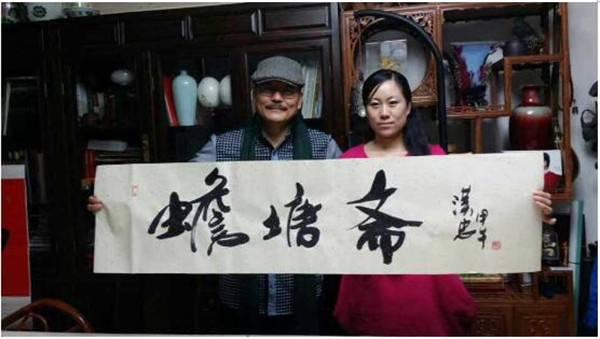 蟾塘斋
漢忠
甲午